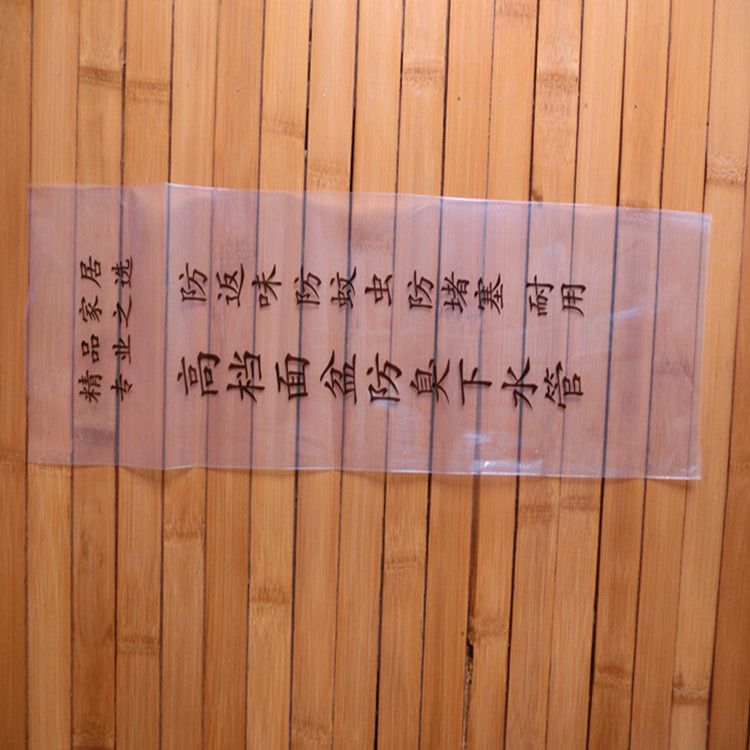 精品家居
专业之选
高档面盆防臭下水管
防返味 防蚊虫 防堵塞 耐用